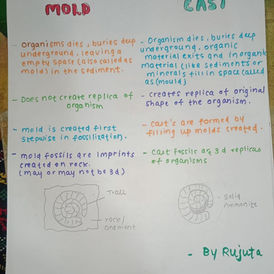 MOLD
CAST
- Organisms dies, buries deep
underground, leaving a
empty space (also called as
mold) in the sediment.
- Organism dies, buries deep
underground, organic
material exits and in organic
material (like sediments or
minerals fill in space (called
as (mould)
- Does not create replica of
organism
- creates replica of original
shape of the organism.
- mold is created first
stepwise in fossilization.
- Cast's are formed by
filling up molds created.
- mold fossils are imprints
created on rock.
(may or may not be 3d)
- Cast fossil as 3d replicas
of organisms
rock/
sediment
Solid
Ammonite
- By Rujuta